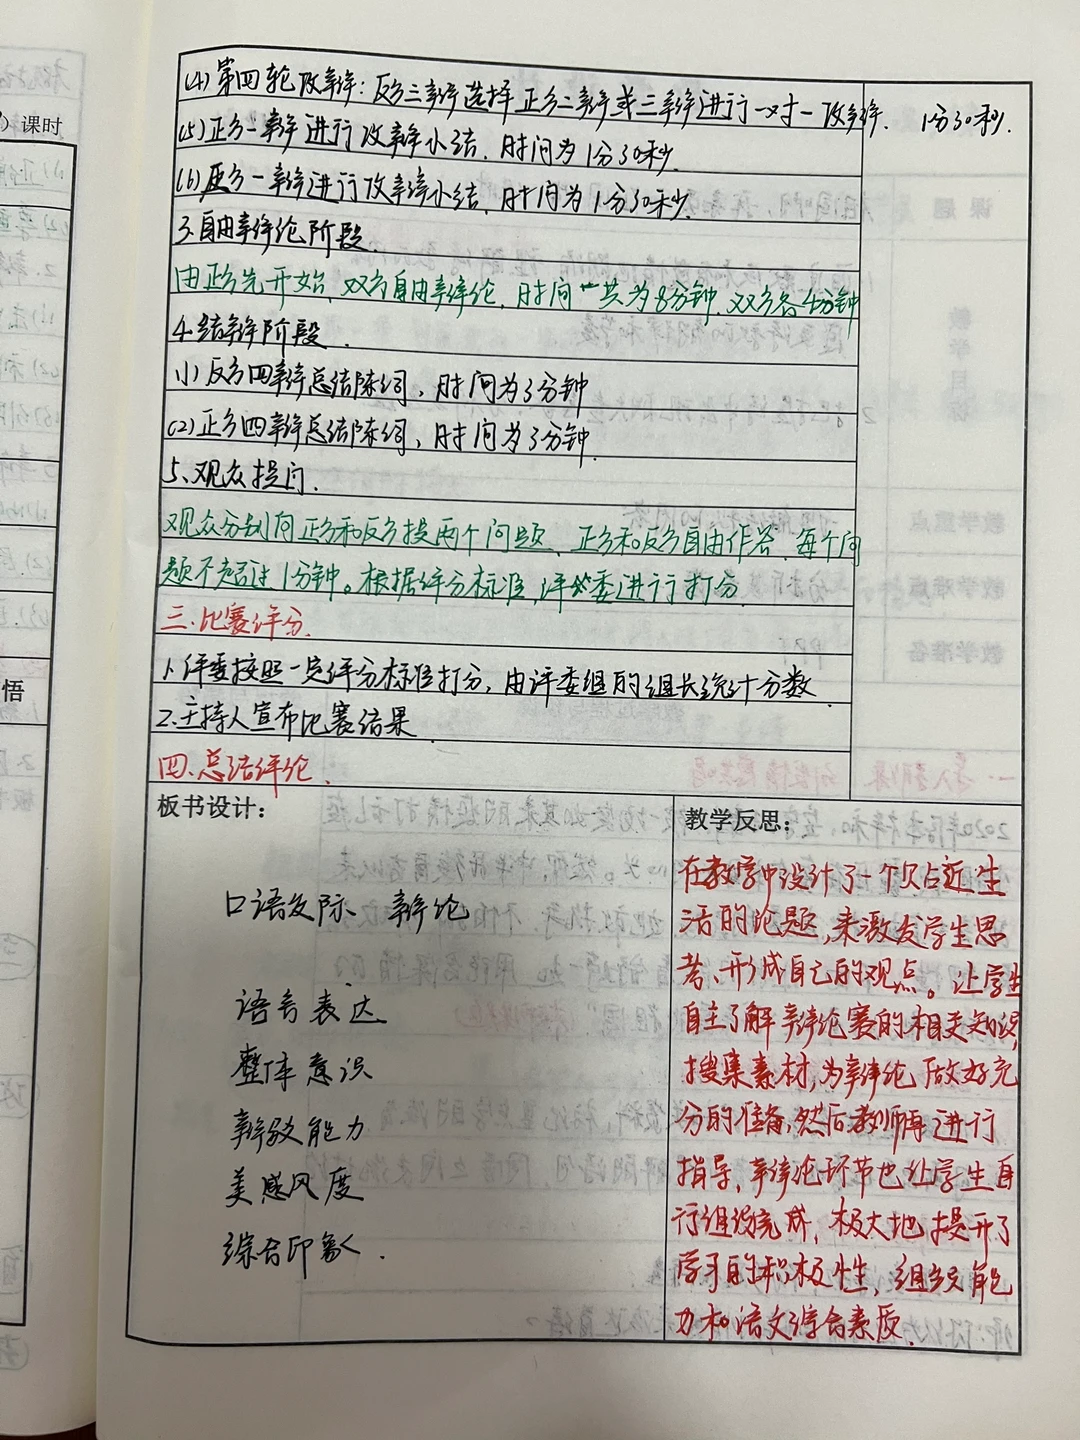 (4)第四轮攻辩：反方三辩选择正方二辩或三辩进行一对一攻辩. 1分30秒.
(5)正方一辩进行攻辩小结，时间为1分30秒.
(6)反方一辩进行攻辩小结，时间为1分30秒.
3.自由辩论阶段.
由正方先开始，双方自由辩论，时间一共为8分钟，双方各4分钟
4.结辩阶段.
(1)反方四辩总结陈词，时间为3分钟
(2)正方四辩总结陈词，时间为3分钟.
5、观众提问.
观众分别向正方和反方提两个问题，正方和反方自由作答，每个问
题不超过1分钟。根据评分标准，评委进行打分.
三.比赛评分.
1.评委按照一定评分标准打分，由评委组的组长统计分数.
2.主持人宣布比赛结果.
四.总结评论.
板书设计：
口语交际、辩论
语言表达
整体意识
辩驳能力
美感风度
综合印象.
教学反思：
在教学中设计了一个贴近生
活的论题，来激发学生思
考、形成自己的观点。让学生
自主了解辩论赛的相关知识，
搜集素材，为辩论做好充
分的准备，然后教师再进行
指导，辩论环节也让学生自
行组织完成，极大地提升了
学习的积极性，组织能
力和语文综合素质.
课时
悟